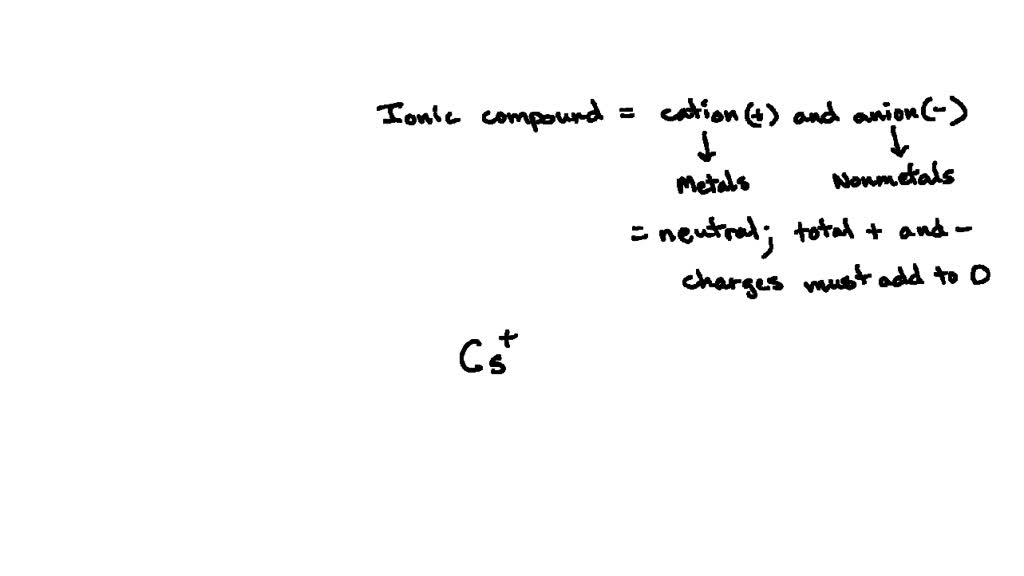 Ionic compound = cation (+) and anion (-)
↓ ↓
Metals Nonmetals
= neutral; total + and -
charges must add to 0
Cs⁺